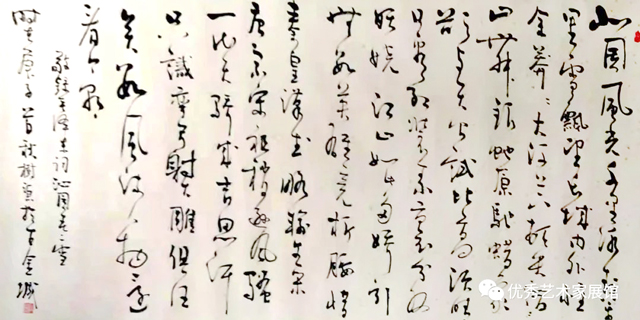 北国風光千里冰封万
里雪飄望长城内外惟
余莽莽大河上下顿失滔
滔山舞银蛇原驰蜡象欲
与天公试比高须晴
日看红装素裹分外
妖娆江山如此多娇引
無数英雄竞折腰惜
秦皇漢武略输文采
唐宗宋祖稍逊风骚
一代天骄成吉思汗
只識弯弓射大雕俱往
矣数風流人物还
看今朝
敬錄毛泽东词沁园春雪
时在庚子首秋树 於古金城
优秀艺术家展馆